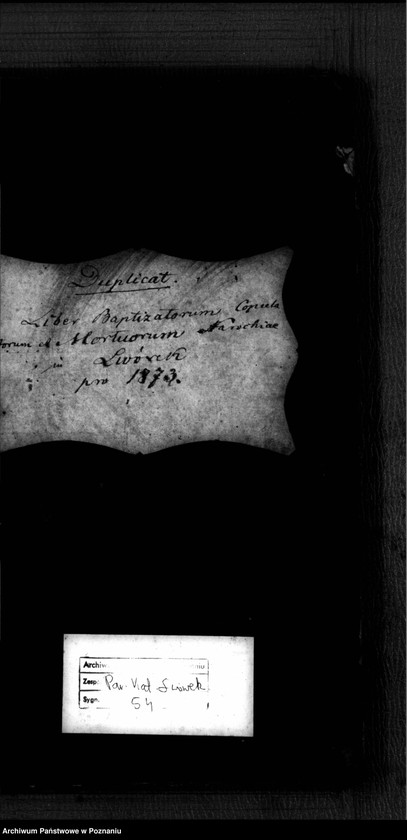 Duplicat.
Liber Baptizatorum Copula
torum et Mortuorum Parochiae
in Lwówek
pro 1873.
Archiw
niu
Zesp. Par. Kat Lwówek
Sygn. 54
Archiwum Państwowe w Poznaniu